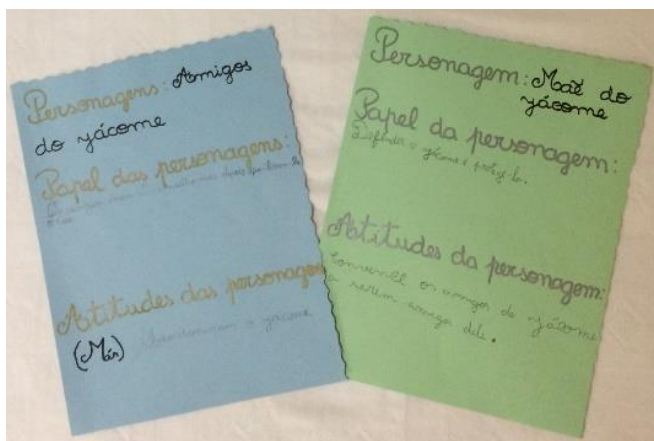 Personagens: Amigos
do yácome
Papel das personagens:
Atitudes das personagens
(Más) Abandonaram o yácome
Personagem: Mãe do
yácome
Papel da personagem:
Defender o yácome e protegê-lo.
Atitudes da personagem:
Convencer os amigos do yácome
a serem amigos dele.